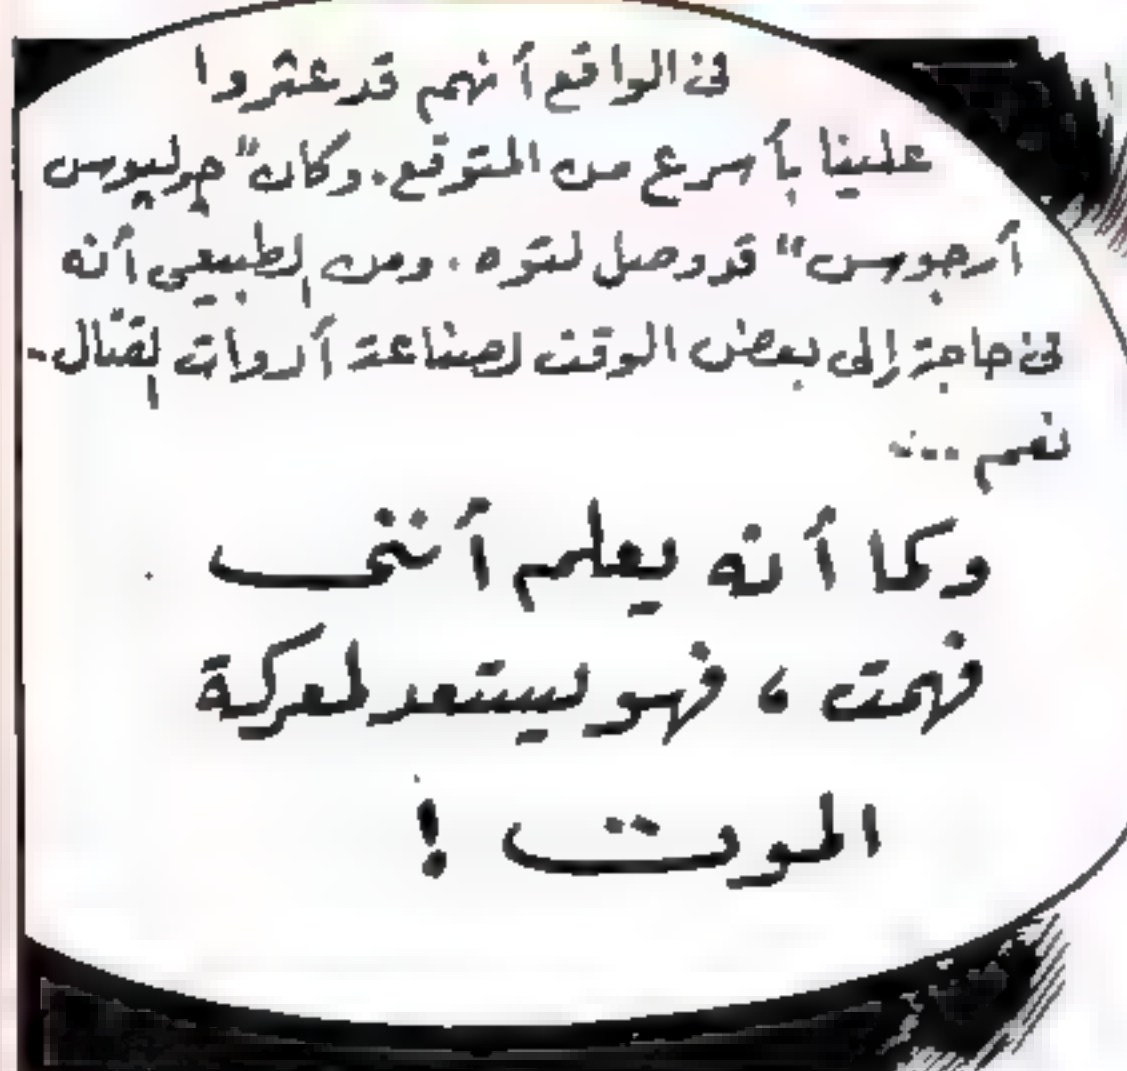 فى الواقع أنهم قد عثروا
علينا بأسرع من المتوقع. وكان "جوليوس
أرجوس" قد وصل لتوه. ومن الطبيعى أنه
فى حاجة إلى بعض الوقت لصناعة أدوات القتال..
نعم ....
وكما أنه يعلم أننى
فهمت، فهو يستعد لمعركة
الموت !